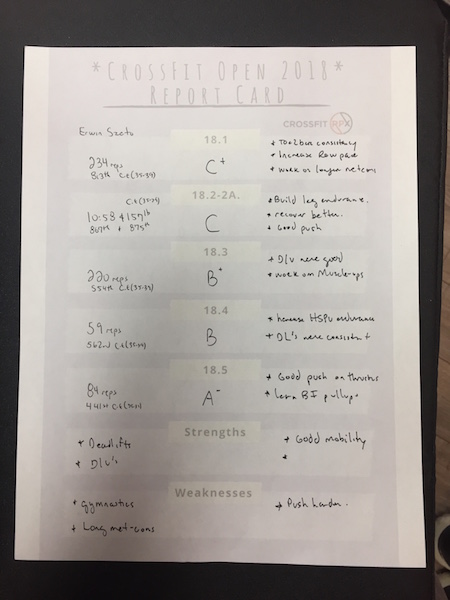 *CrossFit Open 2018*
Report Card
CROSSFIT RPX
Erwin Szeto
18.1
234 reps
813th C.E (35-39)
C+
* Toe2bar consistency
* Increase Row pace
* work on longer metcons
18.2-2A.
C.E (35-39)
10:58 + 157lb
867th + 875th
C
* Build leg endurance.
* recover better.
* Good push
18.3
220 reps
554th C.E (35-39)
B+
* D/U were good
* work on Muscle-ups
18.4
59 reps
562nd C.E (35-39)
B
* Increase HSPU endurance
* DL's were consistent
18.5
84 reps
441st C.E (35-39)
A-
* Good push on thrusters
* Learn BF pullups
Strengths
* Deadlifts
* D/U's
* Good mobility
*
Weaknesses
* gymnastics
* Long met-cons
* Push harder.